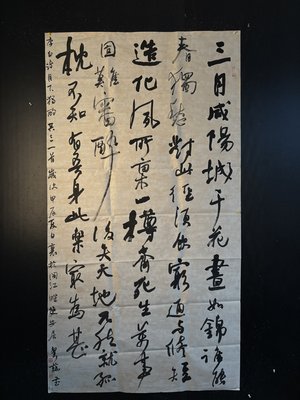 三月咸陽城千花晝如錦誰能
春獨愁對此徑須飲窮通與修短
造化夙所稟一樽齊死生萬事
固難審醉後失天地兀然就孤
枕不知有吾身此樂最為甚
李白詩月下獨酌其三一首歲次甲辰夏日書於閩江